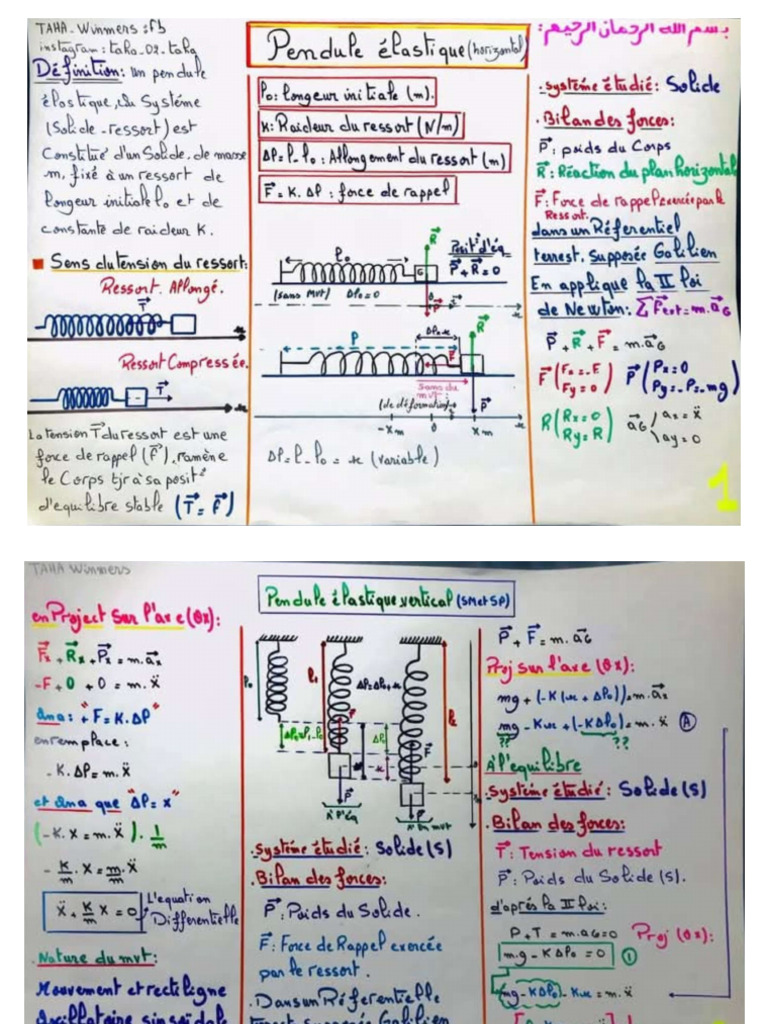 TAHA-Winmers : fb
instagram : taha-02-taha
Pendule élastique (horizontal)
بسم الله الرحمان الرحيم:
Définition: Un pendule
élastique, du Système
(Solide-ressort) est
Constitué d'un Solide, de masse
m, fixé à un ressort de
longeur initiale l₀ et de
constante de raideur K.
Sens du tension du ressort:
Ressort Allongé.
T⃗
x
Ressort Compressée.
T⃗
x
La tension T⃗ du ressort est une
force de rappel (F⃗), ramène
le Corps tjr à sa posit°
d'equilibre stable (T⃗ = F⃗)
l₀: longeur initiale (m).
K: Raideur du ressort (N/m)
Δl = l - l₀: Allongement du ressort (m)
F⃗ = K.Δl : force de rappel
l₀
R⃗
Posit° d'éq
P⃗ + R⃗ = 0
G
(sans mvt) Δl₀=0
P⃗
x
l
Δl=x
R⃗
F⃗
Sens du
mvt
(de déformation)
P⃗
-Xm 0 Xm x
Δl = l - l₀ = x (variable)
.système étudié: Solide
.Bilan des forces:
P⃗: poids du Corps
R⃗: Réaction du plan horizontal
F⃗: Force de rappel exercée par le
Ressort.
dans un Référentiel
terrest. supposée Galilien
En applique la II loi
de Newton: ΣF⃗ext = m.a⃗G
P⃗ + R⃗ + F⃗ = m.a⃗G
F⃗ (Fx = -F P⃗ (Px = 0
Fy = 0) Py = -P = -mg)
R (Rx = 0 a⃗G / ax = ẍ
Ry = R) \ ay = 0
1
TAHA Winmers
Pendule élastique vertical (SM et SP)
en Project sur l'axe (Ox):
F⃗x + R⃗x + P⃗x = m.a⃗x
-F + 0 + 0 = m.ẍ
Ona: "F = K.Δl"
en remplace:
-K.Δl = m.ẍ
et Ona que "Δl = x"
(-K.x = m.ẍ). 1/m
- K/m . x = m/m . ẍ
ẍ + K/m x = 0
L'equation
Differentielle
.Nature du mvt:
Mouvement est rectiligne
Oscillatoire sinusoïdale
l₀
l₁
Δl=Δl₀+x
l
Δl₀=l₁-l₀
Δl₀
x
F⃗
F⃗
P⃗
P⃗
à l'éq
.système étudié: Solide (S)
.Bilan des forces:
P⃗: Poids du Solide.
F⃗: Force de Rappel exercée
par le ressort.
.Dans un Référentielle
terrest supposée Galilien
P⃗ + F⃗ = m.a⃗G
Proj sur l'axe (Ox):
mg + (-K(x + Δl₀)) = m.a⃗x
mg - Kx + (-KΔl₀) = m.ẍ (A)
?? ??
À l'equilibre
.système étudié: Solide (S)
.Bilan des forces:
T⃗: Tension du ressort
P⃗: Poids du Solide (S).
d'après la II loi:
P + T = m.aG = 0 Proj (Ox):
m.g - KΔl₀ = 0 (1)
mg - KΔl₀ - Kx = m.ẍ